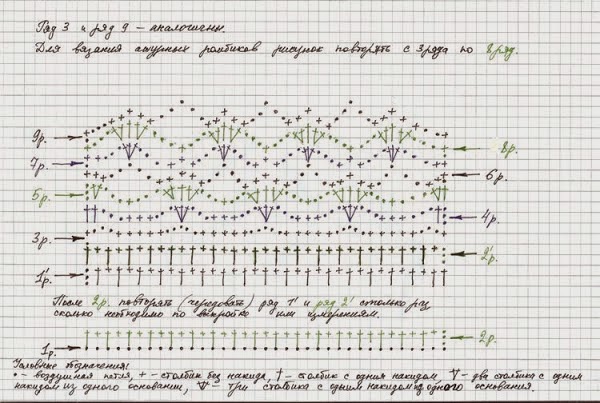 Ряд 3 и ряд 9 – аналогичны.
Для вязания ажурных ромбиков рисунок повторять с 3 ряда по 8 ряд.
9р.
8р.
7р.
6р.
5р.
4р.
3р.
2'р.
1'р.
После 2р. повторять (чередовать) ряд 1' и ряд 2' столько раз
сколько необходимо по выкройке или измерениям.
2р.
1р.
Условные обозначения:
• - воздушная петля, + - столбик без накида, † - столбик с одним накидом, - два столбика с одним
накидом из одного основания, - три столбика с одним накидом из одного основания.